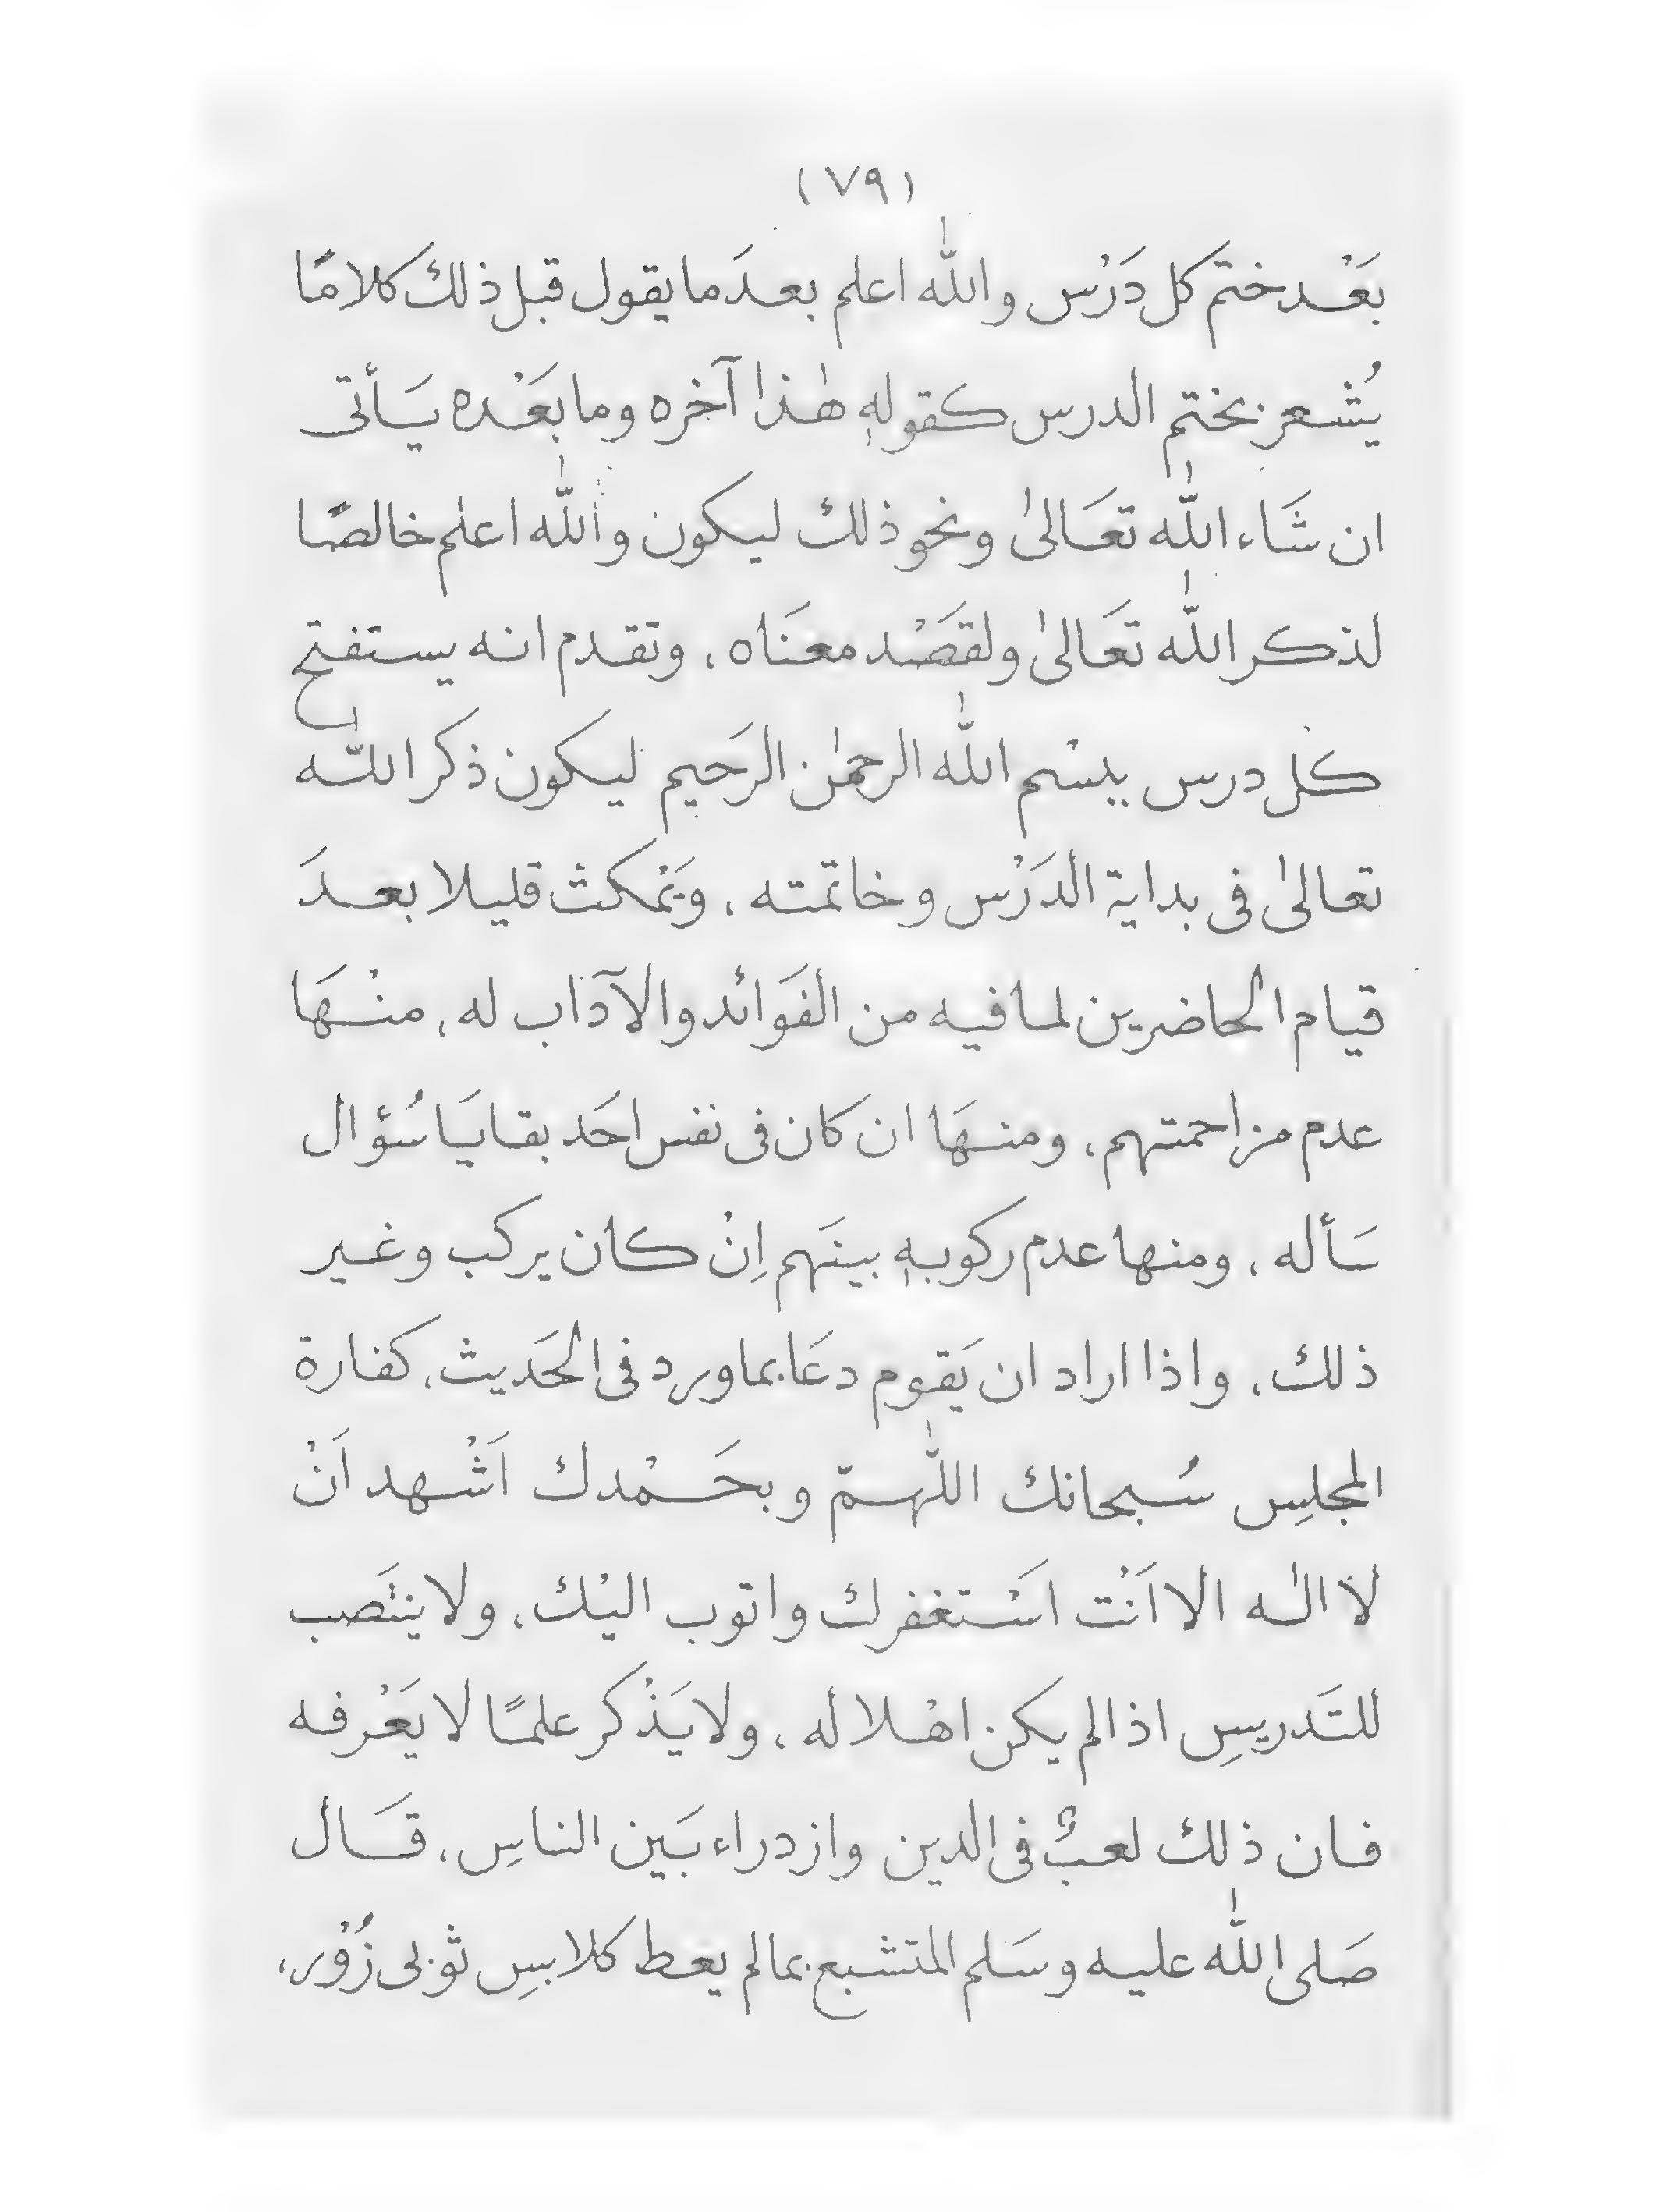 (٧٩)
بَعْد ختمَ كل دَرْس والله اعلم بعدَ ما يقول قبل ذلك كلامًا
يُشْعر بختم الدرس كقوله هٰذا آخره وما بَعْده يَأتى
ان شَاء الله تعَالىٰ ونحو ذلك ليكون والله اعلم خالصًا
لذكر الله تعَالىٰ ولقصَدْ معنَاه ، وتقدم انه يستفتح
كل درس ببسْم الله الرحمٰن الرَحيم ليكون ذكر الله
تعالىٰ فى بداية الدَرْس وخاتمته ، ويَمْكث قليلا بعدَ
قيام الحاضرين لما فيه من الفَوَائد والآدَاب له ، منْهَا
عدم مزاحمتهم ، ومنهَا ان كان فى نفس احَد بقايَا سُؤال
سَأله ، ومنها عدم ركوبه بينَهم اِنْ كان يركب وغير
ذلك ، واذا اراد ان يَقوم دعَا بما ورد فى الحَديث ، كفارة
المجلسِ سُبحانك اللّٰهمّ وبحَمْدك اَشْهد اَنْ
لا الٰه الا اَنْت اسَْتغفرك واتوب اليْك ، ولا ينتَصب
للتَدريسِ اذا لم يكن اهْلا له ، ولا يَذْكر علمًا لا يَعْرفه
فان ذلك لعبٌ فى الدين وازدراء بَين الناسِ ، قَال
صَلى الله عليه وسَلم المتشبع بما لم يعط كلابسِ ثوبى زُوْر ،